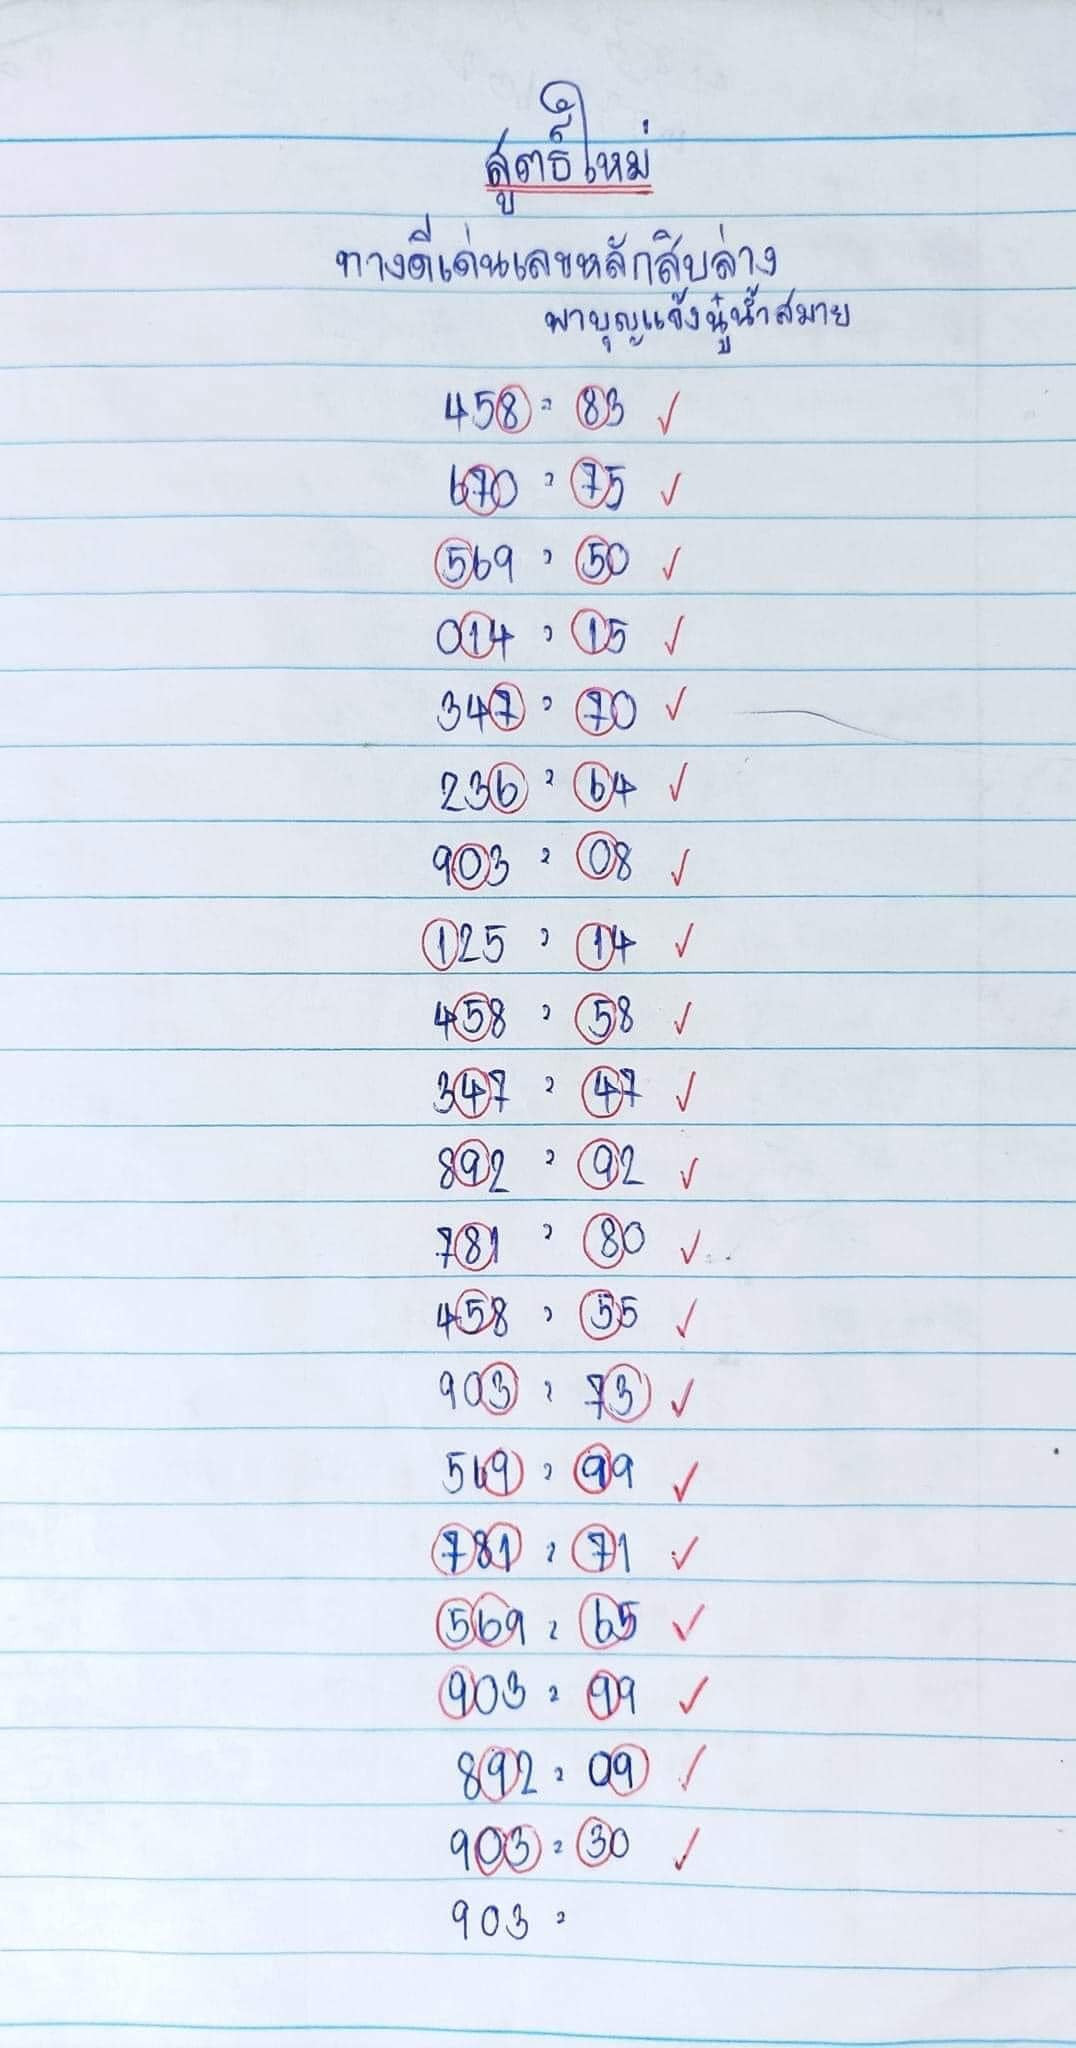 สูตรใหม่
ทางดีเด่นเลขหลักสิบล่าง
พาบุญแจ้งนู๋น้ำสมาย
458 = 83 ✓
670 = 75 ✓
569 = 50 ✓
014 = 15 ✓
347 = 70 ✓
236 = 64 ✓
903 = 08 ✓
125 = 14 ✓
458 = 58 ✓
347 = 47 ✓
892 = 92 ✓
781 = 80 ✓
458 = 55 ✓
903 = 73 ✓
569 = 99 ✓
781 = 71 ✓
569 = 65 ✓
903 = 99 ✓
892 = 09 ✓
903 = 30 ✓
903 =